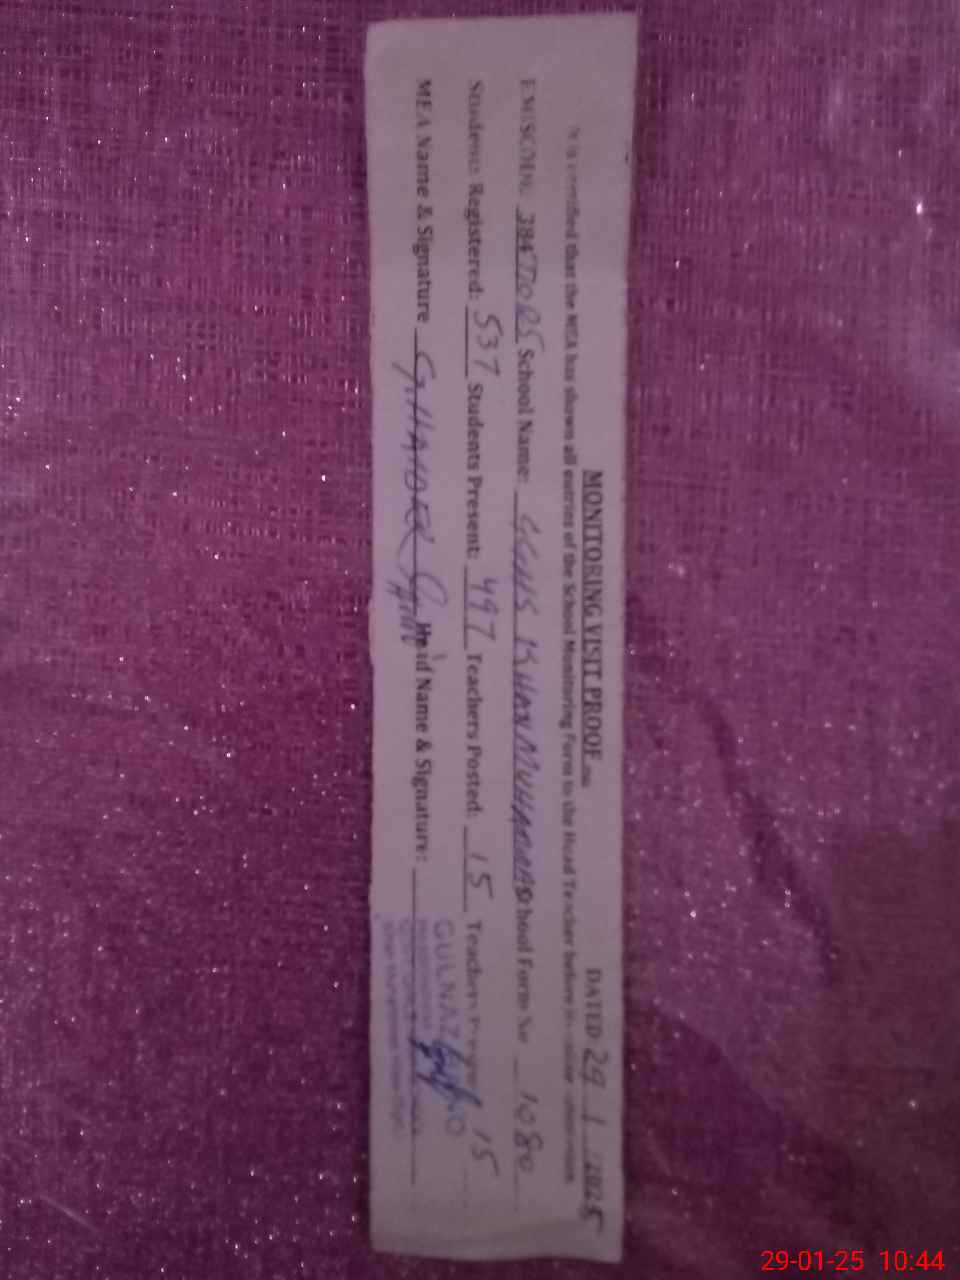 MONITORING VISIT PROOF DATED 29 1 2025
It is certified that the MEA has shown all entries of the School Monitoring Form to the Head Teacher before
EMISCODE School Name: GGHS KHAN MUHAMMAD School Form No 1080
Students Registered: 537 Students Present: 497 Teachers Posted: 15 Teachers Present 15
MEA Name & Signature G.HAIDER Head Name & Signature:
GULNAZ
29-01-25 10:44